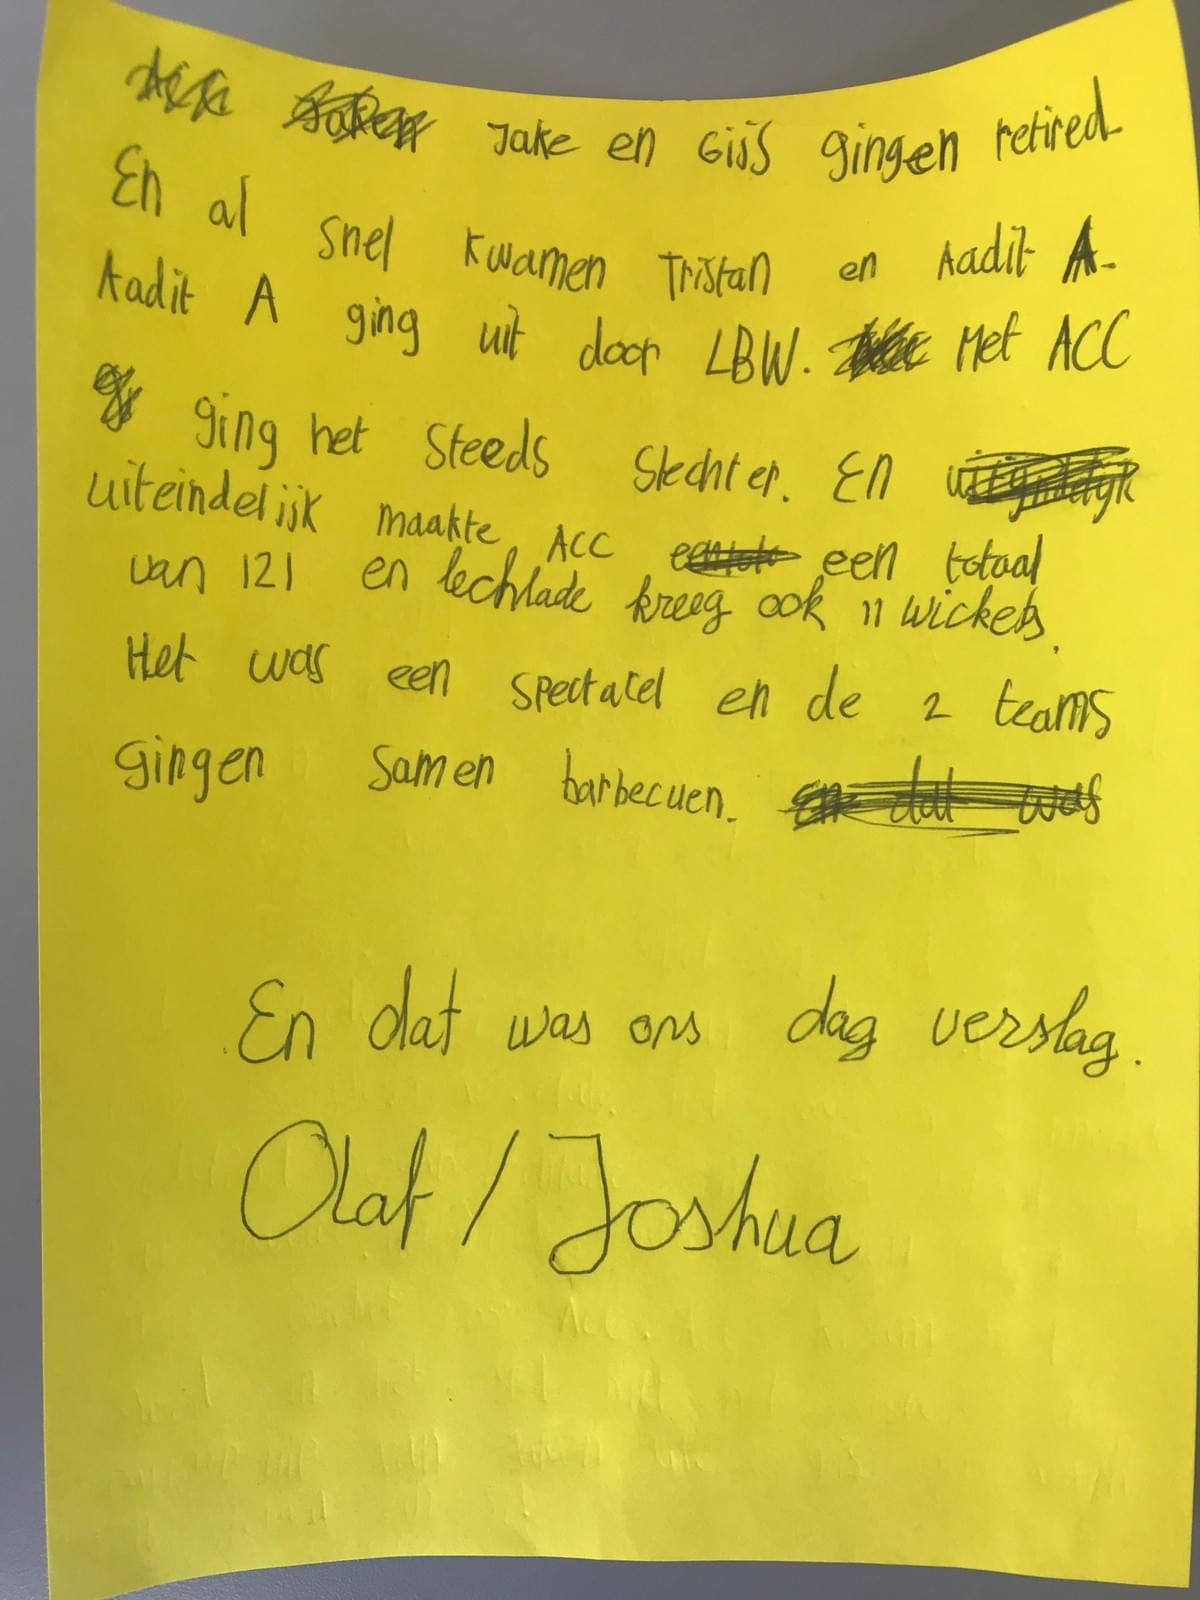 Jake en Gijs gingen retired
En al snel kwamen Tristan en Aadit A.
Aadit A ging uit door LBW. Met ACC
ging het steeds slechter. En
uiteindelijk maakte ACC een totaal
van 121 en lechlade kreeg ook 11 wickets.
Het was een spectacel en de 2 teams
gingen samen barbecuen. en dat was
En dat was ons dag verslag.
Olaf / Joshua